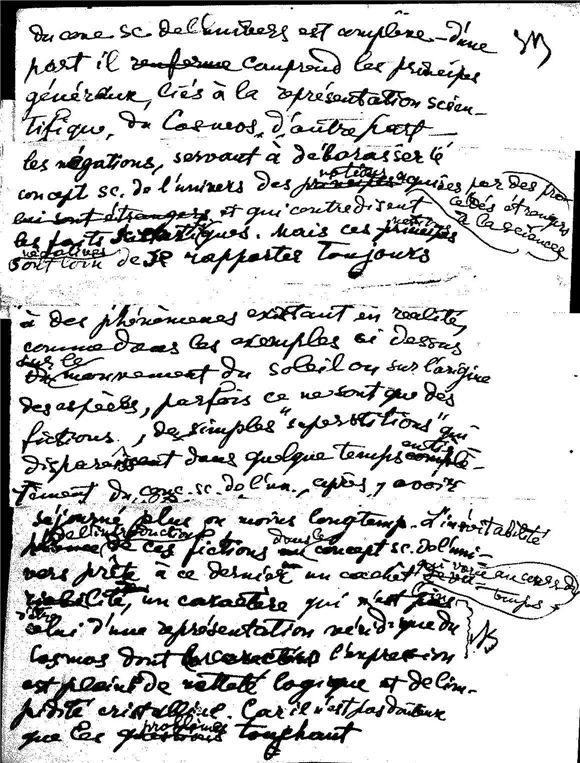 du conc sc. de l'univers est complexe - d'une
part il renferme comprend les principes
généraux, liés à la représentation scien-
tifique, du Cosmos, d'autre part -
les négations, servant à débarasser le
concept sc. de l'univers des principes notions acquises par des pro-
cédés étrangers à la science
qui sont étrangers, et qui contredisent
les faits. Mais ces principes
négatives sont loin de se rapporter toujours
à des phénomènes existant en réalité,
comme dans les exemples ci dessus
sur le mouvement du soleil ou sur l'origine
des espèces, parfois ce ne sont que des
fictions, des simples "superstitions" qui
disparaissent dans quelque temps complè-
tement du conc. sc. de l'un., après y avoir
séjourné plus ou moins longtemp. L'inévitabilité
de l'introduction de ces fictions dans le concept sc. de l'uni-
vers prête à ce dernier un cachet qui varie au cours du temps
un caractère qui n'est pas
celui d'une représentation véridique du
Cosmos dont l'expression
est pleine de netteté logique et de lim-
pidité cristalline. Car il n'est pas douteux
que les questions problèmes touchant